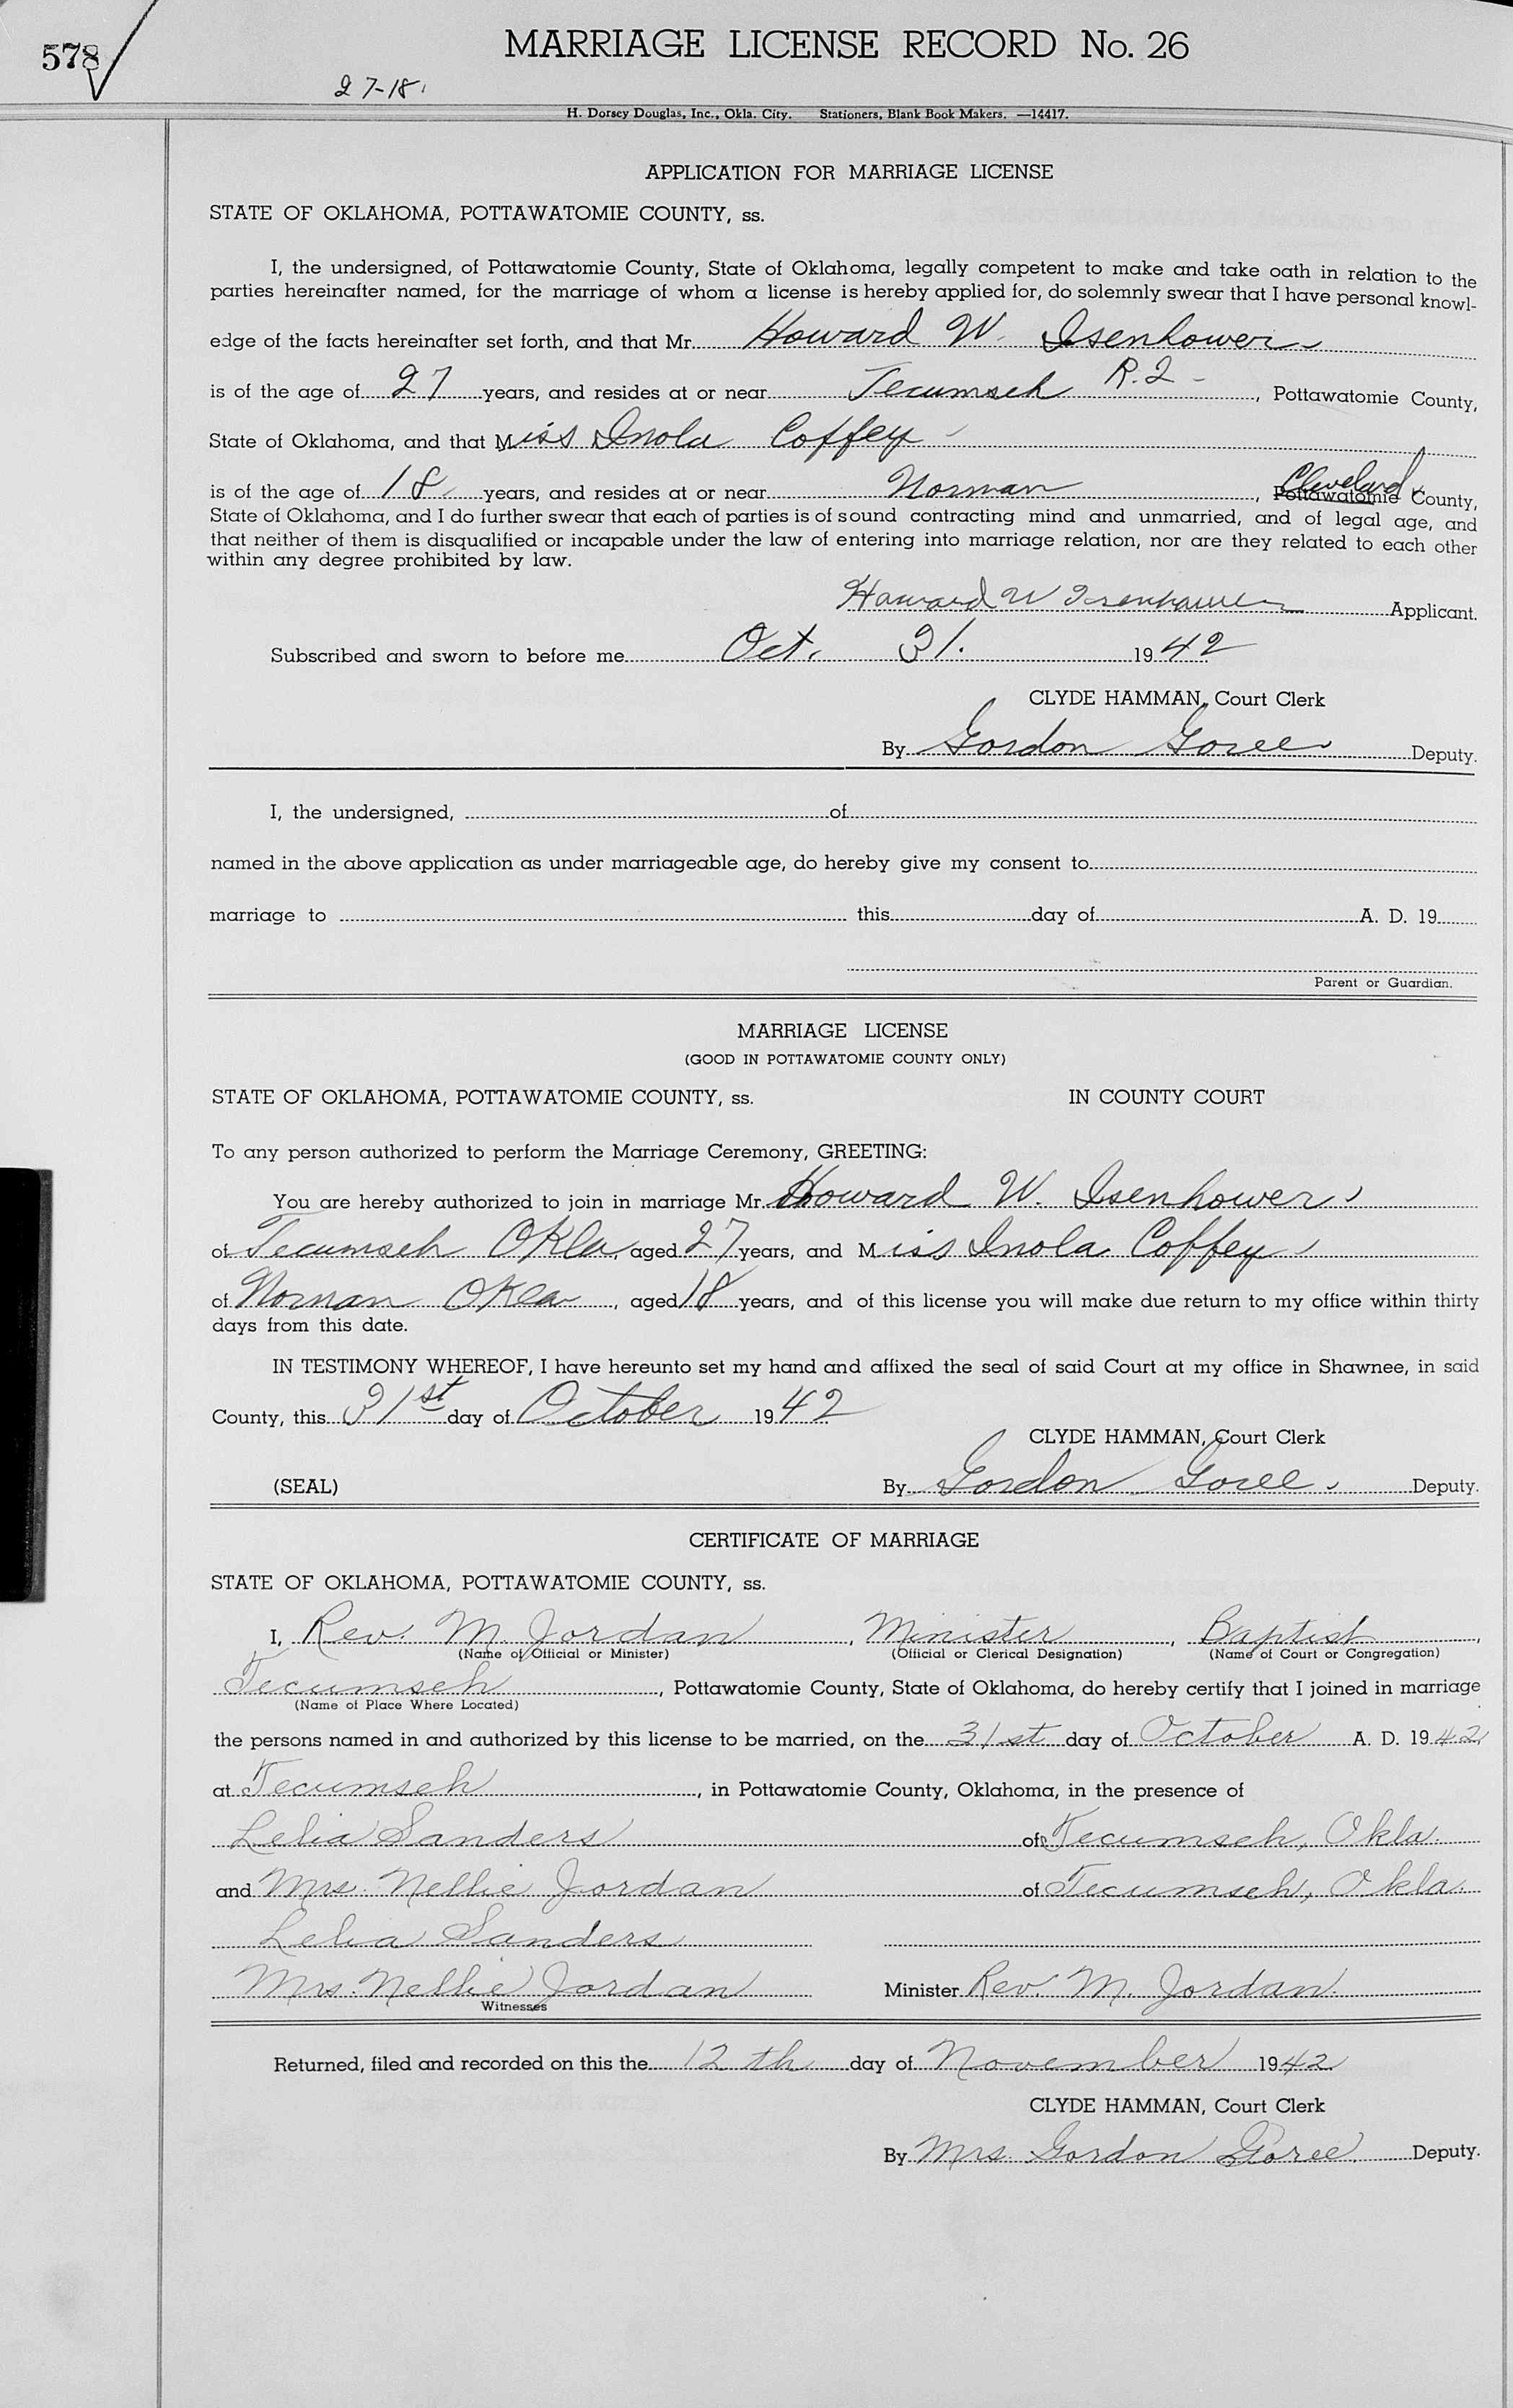 578
MARRIAGE LICENSE RECORD No. 26
27-18
H. Dorsey Douglas, Inc., Okla. City. Stationers, Blank Book Makers. —14417.
APPLICATION FOR MARRIAGE LICENSE
STATE OF OKLAHOMA, POTTAWATOMIE COUNTY, ss.
I, the undersigned, of Pottawatomie County, State of Oklahoma, legally competent to make and take oath in relation to the
parties hereinafter named, for the marriage of whom a license is hereby applied for, do solemnly swear that I have personal knowl-
edge of the facts hereinafter set forth, and that Mr. Howard W. Isenhower
is of the age of 27 years, and resides at or near Tecumseh R.2 - , Pottawatomie County,
State of Oklahoma, and that Miss Inola Coffey
is of the age of 18 years, and resides at or near Norman , Pottawatomie Cleveland County,
State of Oklahoma, and I do further swear that each of parties is of sound contracting mind and unmarried, and of legal age, and
that neither of them is disqualified or incapable under the law of entering into marriage relation, nor are they related to each other
within any degree prohibited by law.
Howard W Isenhower Applicant.
Subscribed and sworn to before me Oct. 31. 1942
CLYDE HAMMAN, Court Clerk
By Gordon Goree Deputy.
I, the undersigned, of
named in the above application as under marriageable age, do hereby give my consent to
marriage to this day of A. D. 19
Parent or Guardian.
MARRIAGE LICENSE
(GOOD IN POTTAWATOMIE COUNTY ONLY)
STATE OF OKLAHOMA, POTTAWATOMIE COUNTY, ss. IN COUNTY COURT
To any person authorized to perform the Marriage Ceremony, GREETING:
You are hereby authorized to join in marriage Mr. Howard W. Isenhower
of Tecumseh Okla, aged 27 years, and Miss Inola Coffey
of Norman Okla, aged 18 years, and of this license you will make due return to my office within thirty
days from this date.
IN TESTIMONY WHEREOF, I have hereunto set my hand and affixed the seal of said Court at my office in Shawnee, in said
County, this 31st day of October 1942
CLYDE HAMMAN, Court Clerk
(SEAL) By Gordon Goree Deputy.
CERTIFICATE OF MARRIAGE
STATE OF OKLAHOMA, POTTAWATOMIE COUNTY, ss.
I, Rev. M. Jordan, Minister, Baptist,
(Name of Official or Minister) (Official or Clerical Designation) (Name of Court or Congregation)
Tecumseh, Pottawatomie County, State of Oklahoma, do hereby certify that I joined in marriage
(Name of Place Where Located)
the persons named in and authorized by this license to be married, on the 31st day of October A. D. 1942
at Tecumseh, in Pottawatomie County, Oklahoma, in the presence of
Lelia Sanders of Tecumseh, Okla.
and Mrs. Nellie Jordan of Tecumseh, Okla.
Lelia Sanders
Mrs. Nellie Jordan Minister Rev. M. Jordan.
Witnesses
Returned, filed and recorded on this the 12th day of November 1942
CLYDE HAMMAN, Court Clerk
By Mrs. Gordon Goree. Deputy.